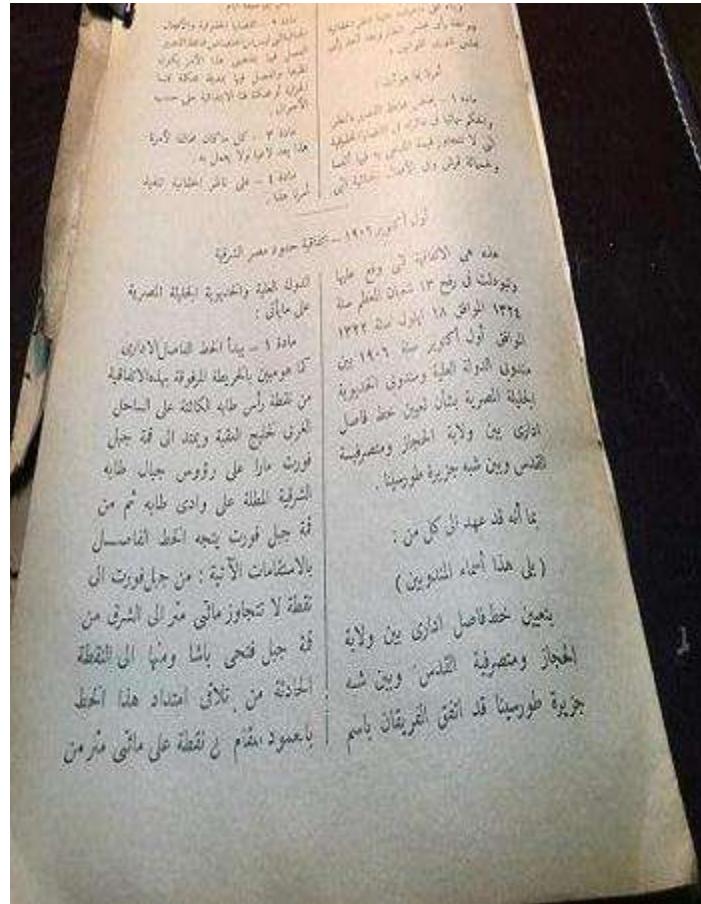 أمرنا بما هو آت :
مادة ١ -
مادة ٣ - كل ما كان مخالفا لأمرنا
هذا يعد لاغيا ولا يعمل به .
مادة ٤ - على ناظر الحقانية تنفيذ
أمرنا هذا .
أول أكتوبر ١٩٠٦ - اتفاقية حدود مصر الشرقية
هذه هى الاتفاقية التى وقع عليها
وتبودلت فى رفح ١٣ شعبان المعظم سنة
١٣٢٤ الموافق ١٨ ايلول سنة ١٣٢٢
الموافق أول أكتوبر سنة ١٩٠٦ بين
مندوبى الدولة العلية ومندوبى الخديوية
الجليلة المصرية بشأن تعيين خط فاصل
ادارى بين ولاية الحجاز ومتصرفية
القدس وبين شبه جزيرة طورسينا .
بما أنه قد عهد الى كل من :
( يلى هذا أسماء المندوبين )
بتعيين خط فاصل ادارى بين ولاية
الحجاز ومتصرفية القدس وبين شبه
جزيرة طورسينا قد اتفق الفريقان باسم
الدولة العلية والخديوية الجليلة المصرية
على ما يأتى :
مادة ١ - يبدأ الخط الفاصل الادارى
كما هو مبين بالخريطة المرفوقة بهذه الاتفاقية
من نقطة رأس طابه الكائنة على الساحل
الغربى لخليج العقبة ويمتد الى قمة جبل
فورت مارا على رؤوس جبال طابه
الشرقية المطلة على وادى طابه ثم من
قمة جبل فورت يتجه الخط الفاصل
بالاستقامات الآتية : من جبل فورت الى
نقطة لا تتجاوز مائتى متر الى الشرق من
قمة جبل فتحى باشا ومنها الى النقطة
الحادثة من تلاقى امتداد هذا الخط
بالعمود المقام من نقطة على مائتى متر من